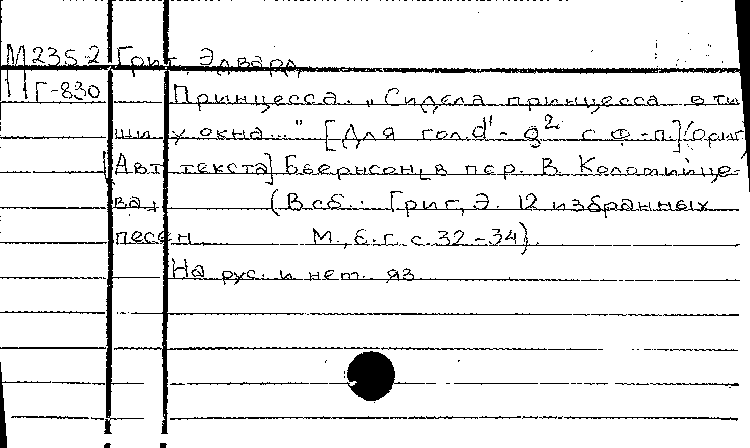 М235-2 Григ, Эдвард
Г-830 Принцесса. „Сидела принцесса в ти
ши у окна..." [Для гол. d¹ - g² с ф.-п.] (ориг)
[Авт текста] Бьернсон, в пер. В. Коломийце-
ва, (В сб.: Григ, Э. 12 избранных
песен М., б.г. с. 32-34).
На рус. и нем. яз.